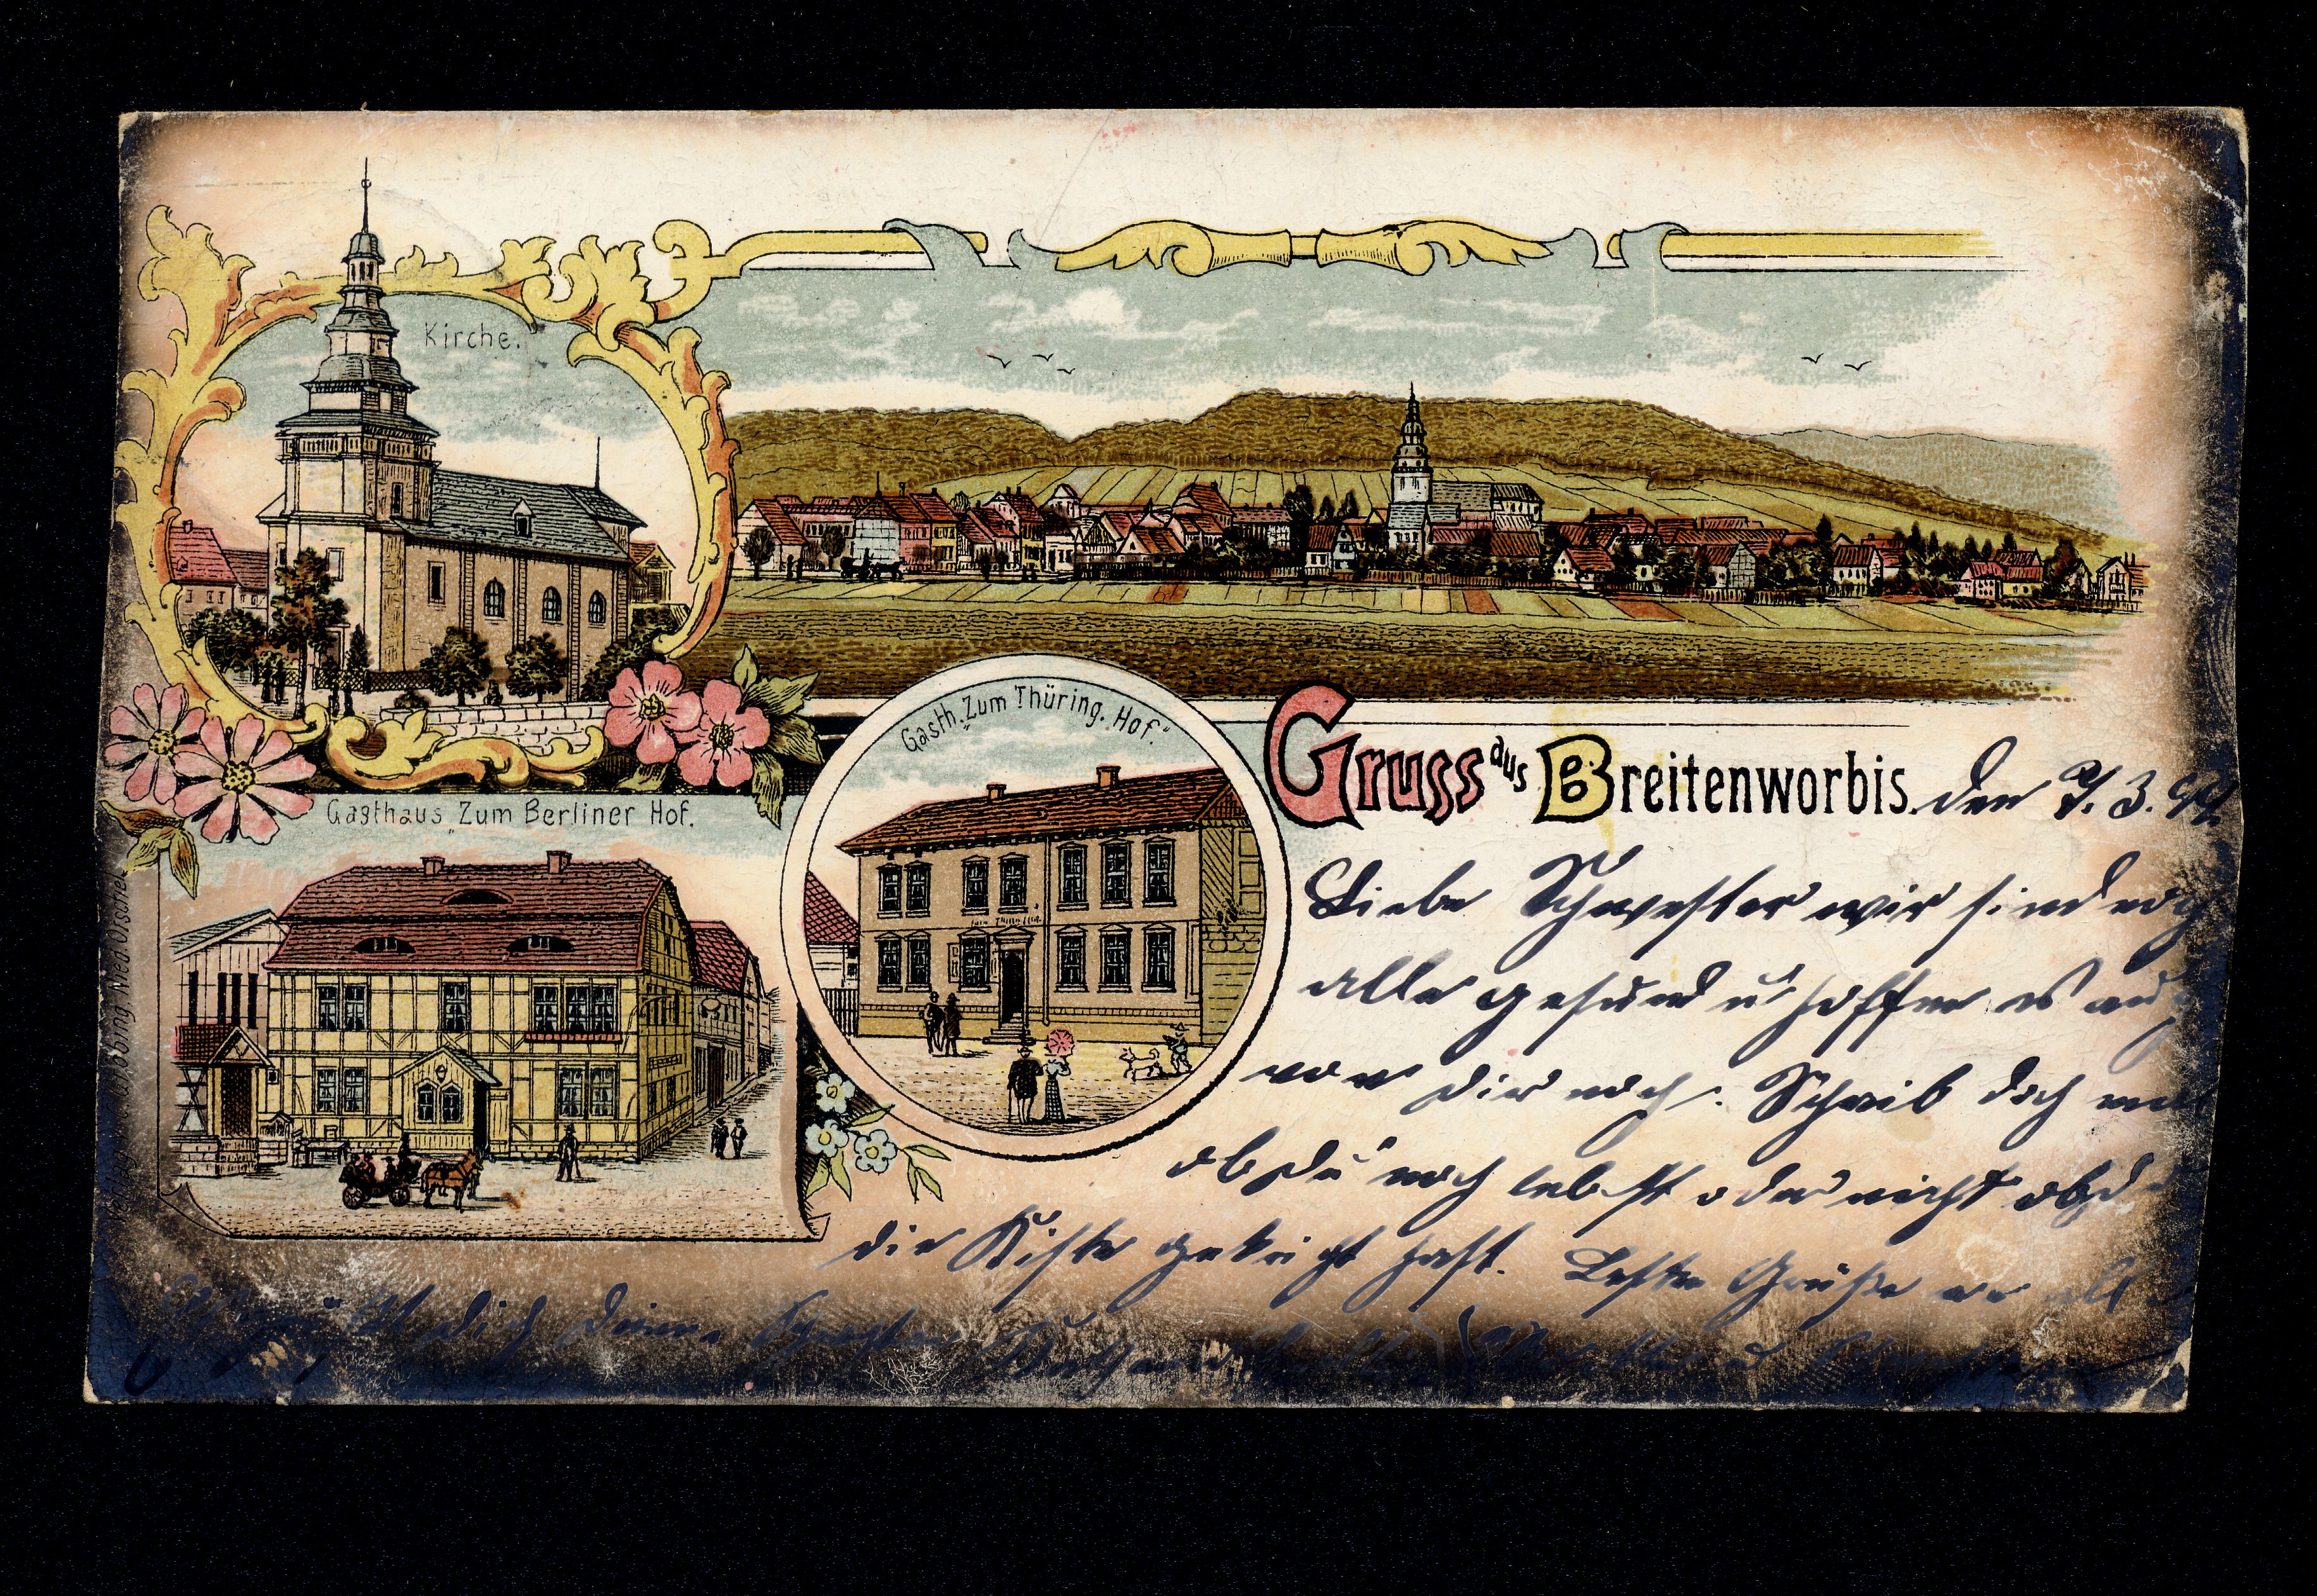 Kirche.
Gasth. "Zum Thüring. Hof."
Gruss aus Breitenworbis. den 9. 3. 99.
Gasthaus "Zum Berliner Hof.
Liebe Schwester wir sind noch
alle gesund u hoffen es auch
von dir noch. Schreib doch mal
ob du noch lebst oder nicht ob du
die Kiste gekricht hast. Beste Grüße von alle
dich deine Schwester